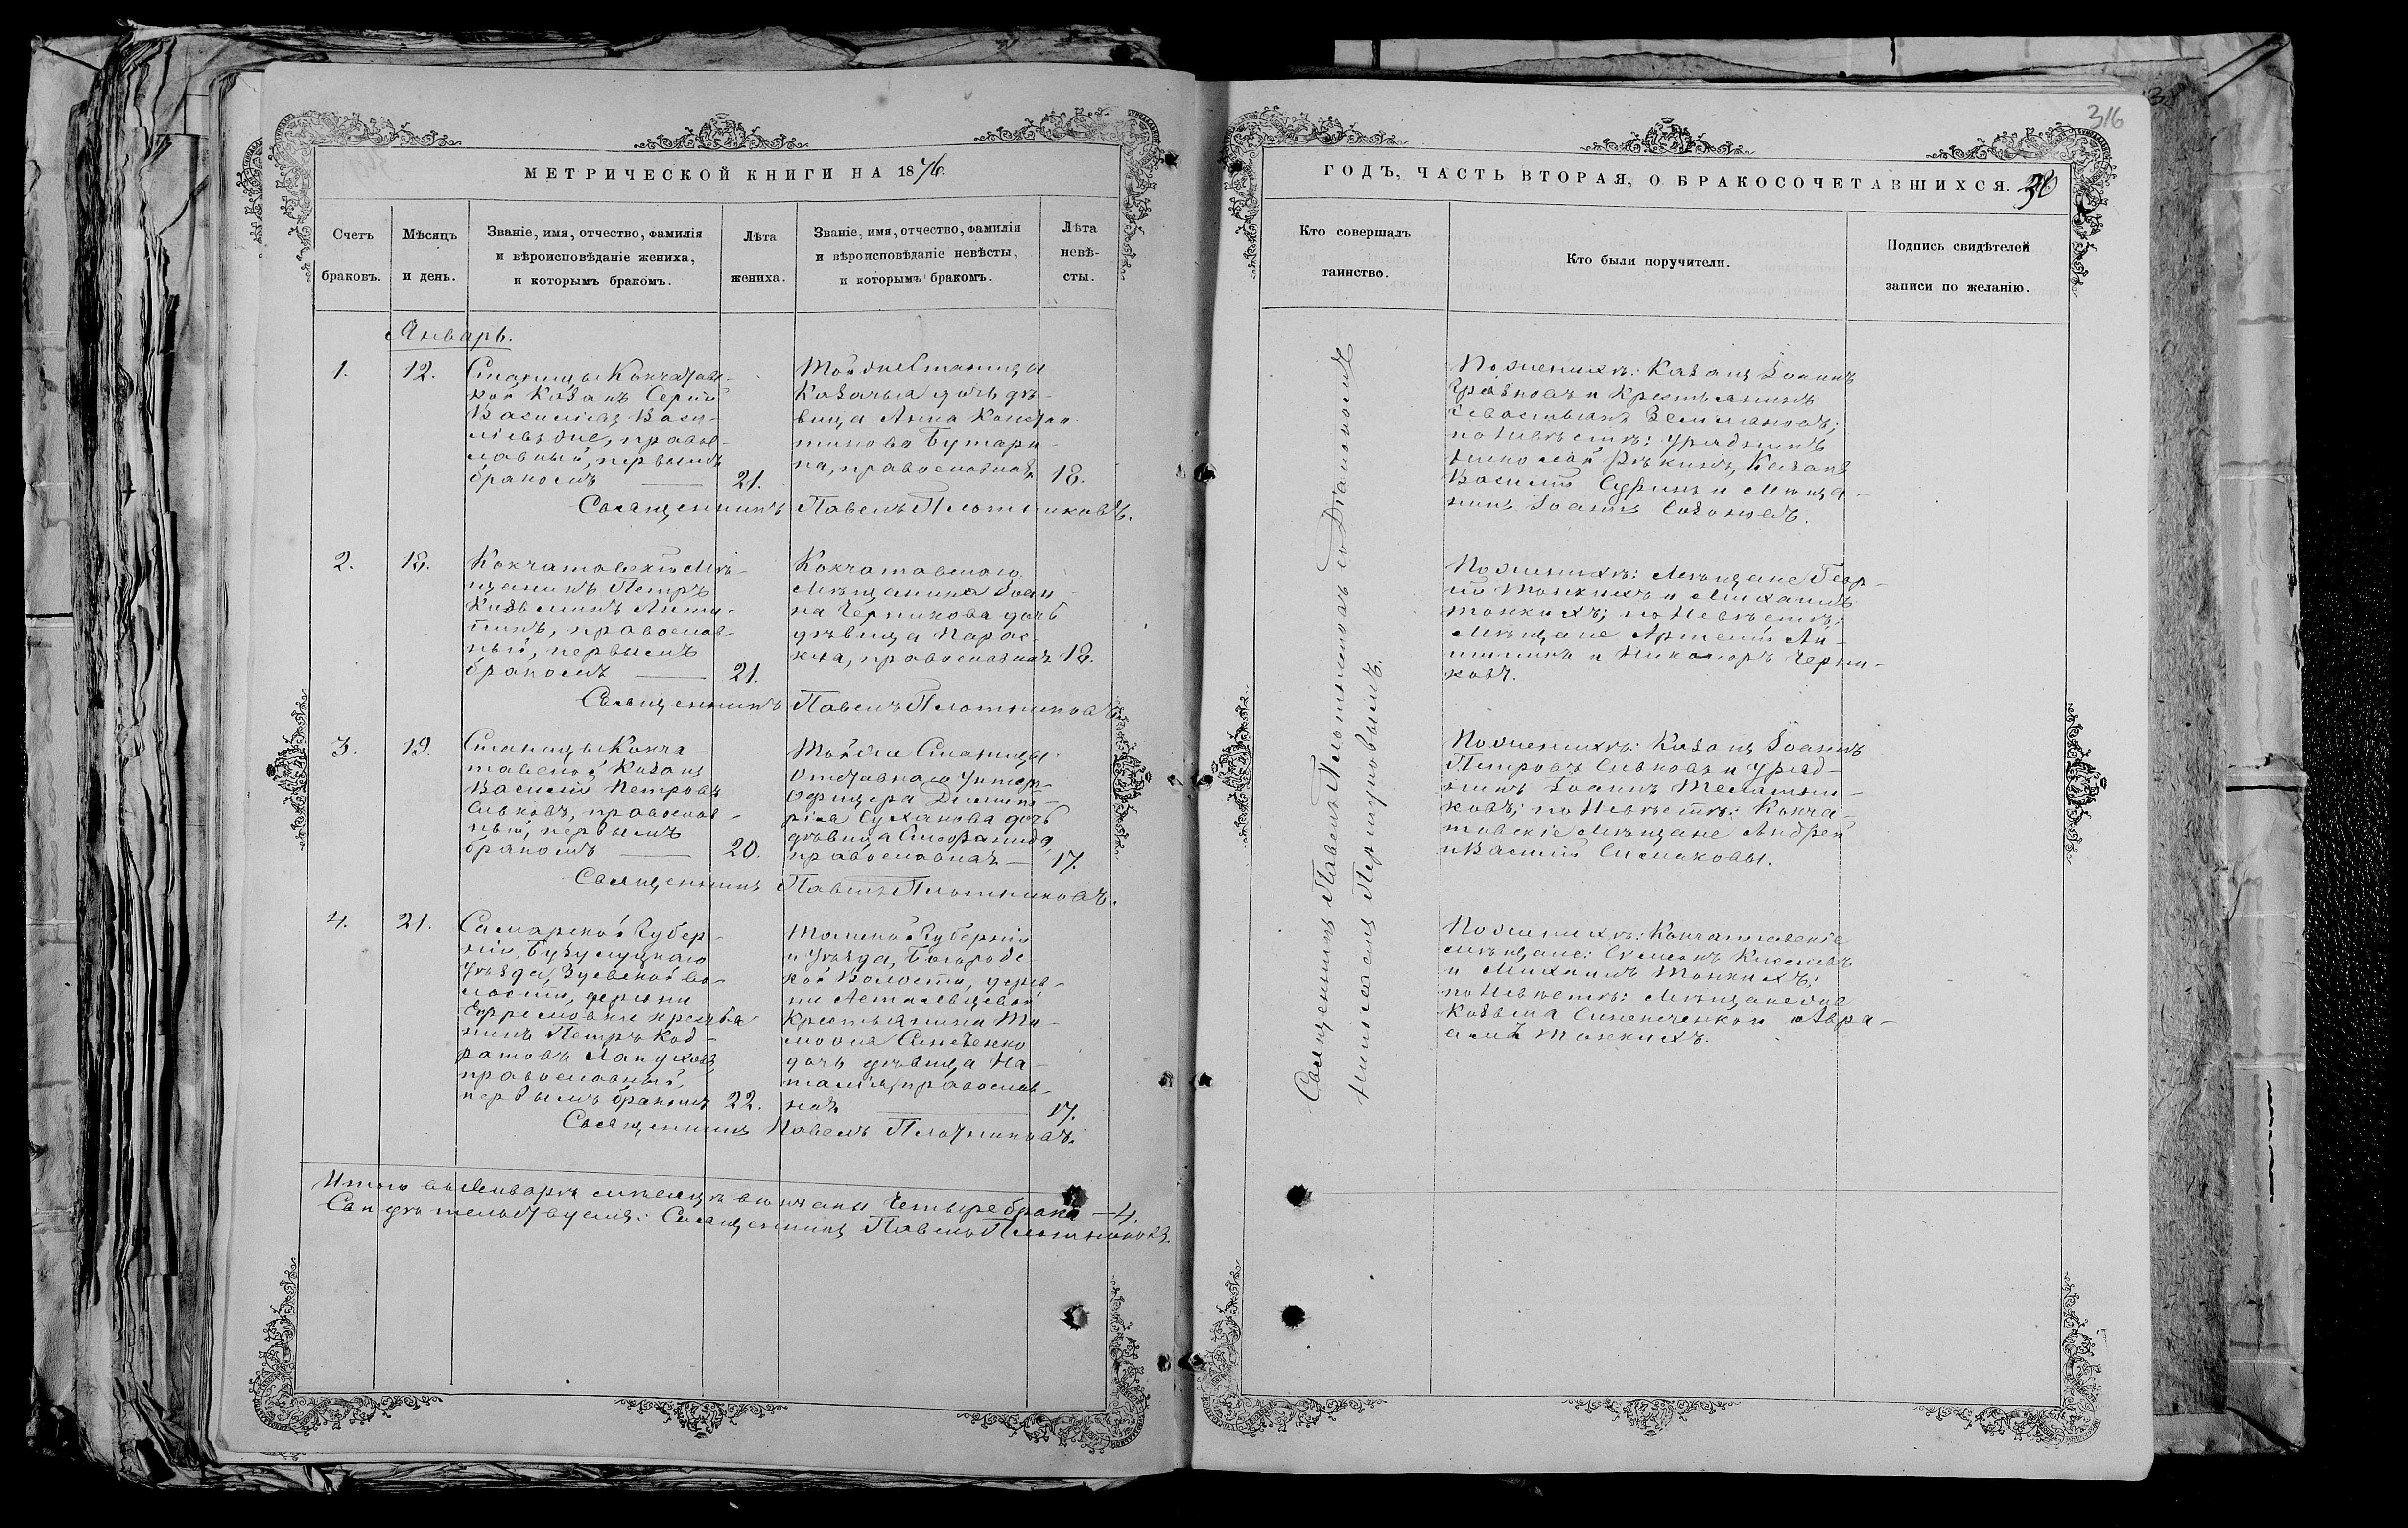 316
МЕТРИЧЕСКОЙ КНИГИ НА 1876.
ГОДЪ, ЧАСТЬ ВТОРАЯ, О БРАКОСОЧЕТАВШИХСЯ.
Счетъ
браковъ.
Мѣсяцъ
и день.
Званіе, имя, отчество, фамилія
и вѣроисповѣданіе жениха,
и которымъ бракомъ.
Лѣта
жениха.
Званіе, имя, отчество, фамилія
и вѣроисповѣданіе невѣсты,
и которымъ бракомъ.
Лѣта
невѣ-
сты.
Кто совершалъ
таинство.
Кто были поручители.
Подпись свидѣтелей
записи по желанію.
Январь.
1.
12.
Станицы Кокчетав-
ской Казакъ Сергій
Васильевъ
православный, первымъ
бракомъ
21.
Той же станицы
Казачья дочь дѣ-
вица Анна Констан-
тинова Бутори-
на, православная
18.
Священникъ Павелъ Плотниковъ.
По женихѣ: Казаки Іоаннъ
и Крестьянинъ
Севастьянъ Земляновъ;
по невѣстѣ: урядникъ
Николай Казакъ
Василій и мѣща-
нинъ Іоаннъ Созоновъ.
2.
18.
Кокчетавскій мѣ-
щанинъ Петръ
Козьминъ
православ-
ный, первымъ
бракомъ
21.
Кокчетавскаго
мѣщанина Іоан-
на Черникова дочь
дѣвица Парас-
кева, православная
18.
Священникъ Павелъ Плотниковъ.
По женихѣ: мѣщане Геор-
гій Тонкихъ и Михаилъ
Тонкихъ; по невѣстѣ:
мѣщане Артемій
и Никаноръ Черни-
ковъ.
3.
19.
Станицы Кокче-
тавской Казакъ
Василій Петровъ
Сивковъ, православ-
ный, первымъ
бракомъ
20.
Той же станицы
отставнаго унтер-
офицера Димит-
рія Суханова дочь
дѣвица Стефанида,
православная
17.
Священникъ Павелъ Плотниковъ.
По женихѣ: Казаки Іоаннъ
Петровъ Сивковъ и уряд-
никъ Іоаннъ
по невѣстѣ: Кокче-
тавскіе мѣщане Андрей
и Василій Симаковы.
4.
21.
Самарской губер-
ніи, Бузулуцкаго
уѣзда, во-
лости, деревни
Ефремовки крестья-
нинъ Петръ Код-
ратовъ Лапуховъ,
православный,
первымъ бракомъ
22.
Томской губерніи
и уѣзда, Богород-
ской волости, дерев-
ни
крестьянина Ти-
мофея
дочь дѣвица На-
талія, православ-
ная
17.
Священникъ Павелъ Плотниковъ.
По женихѣ: Кокчетавскіе
мѣщане: Семенъ Киселевъ
и Михаилъ Тонкихъ;
по невѣстѣ: мѣщане
Козьма и Авра-
амъ Тонкихъ.
Священникъ Павелъ Плотниковъ съ Діакономъ
Итого въ Январѣ мѣсяцѣ вѣнчаны Четыре брака — 4.
Свидѣтельствуемъ: Священникъ Павелъ Плотниковъ.